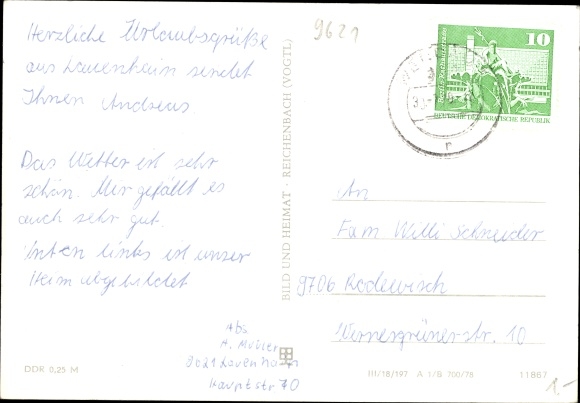 Herzliche Urlaubsgrüße
aus Lauenhain sendet
Ihnen Andreas.
Das Wetter ist sehr
schön. Mir gefällt es
auch sehr gut.
Unten links ist unser
Heim abgebildet
Abs
A.
Lauenhain
Hauptstr 70
DDR 0,25 M
BILD UND HEIMAT · REICHENBACH (VOGTL)
9621
10
DEUTSCHE DEMOKRATISCHE REPUBLIK
An
Fam Willi Schneider
9706 Rodewisch
Wernesgrünerstr. 10
III/18/197 A 1/B 700/78
11867
1,-